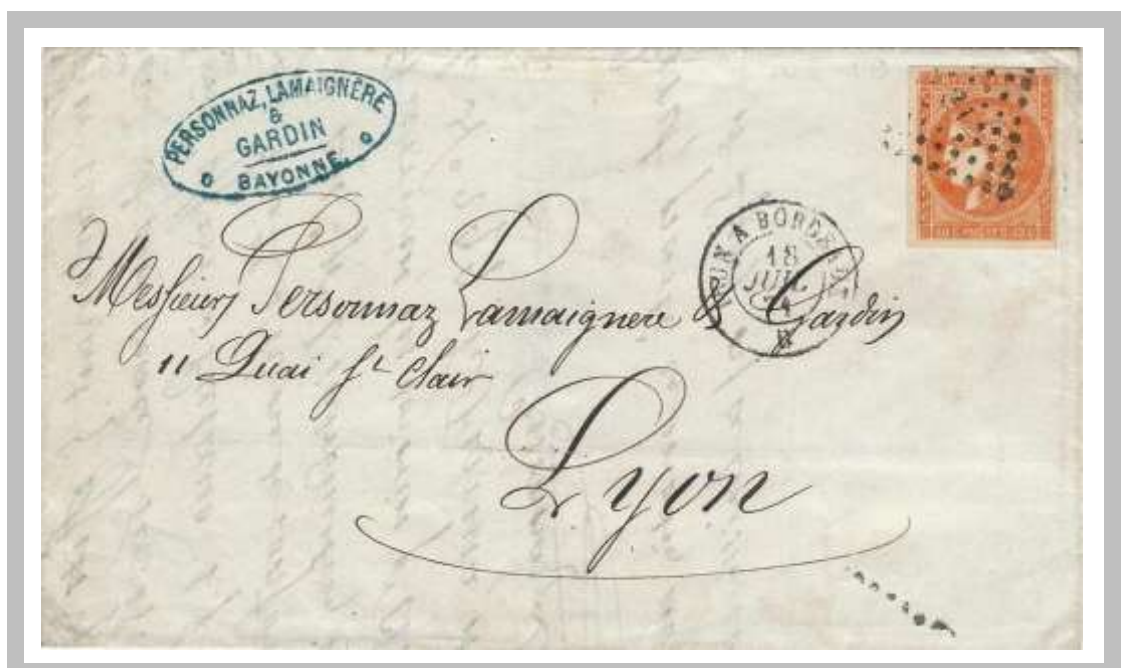 PERSONNAZ, LAMAIGNÈRE
&
GARDIN
BAYONNE.
A BORDEAUX
18
JUIL.
Messieurs Personnaz Lamaignere & Gardin
11 Quai St Clair
Lyon